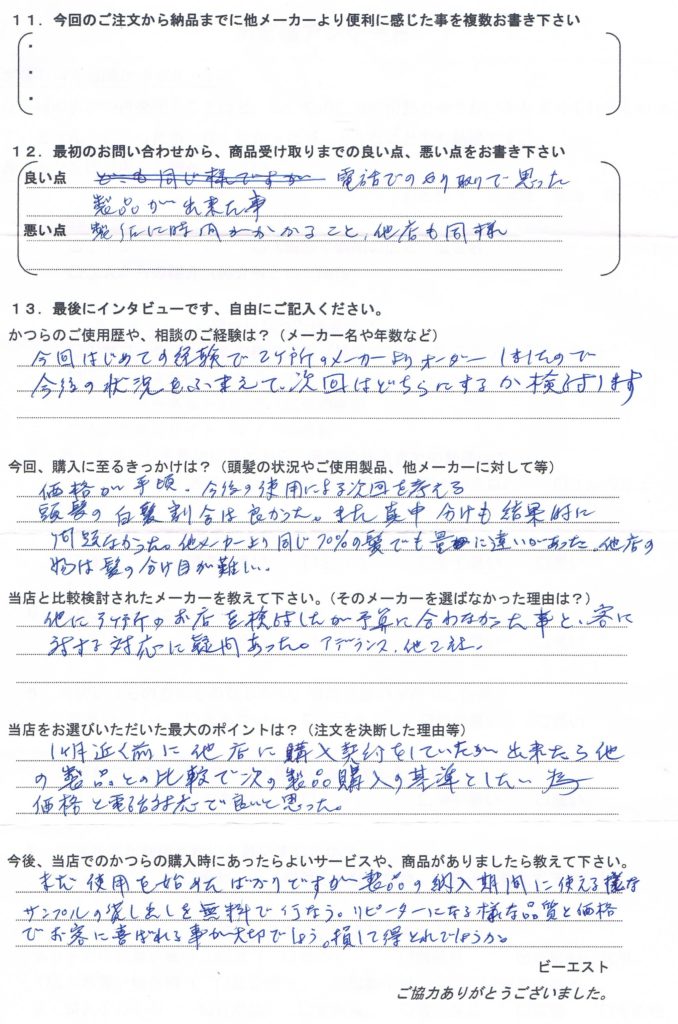 １１．今回のご注文から納品までに他メーカーより便利に感じた事を複数お書き下さい
・
・
１２．最初のお問い合わせから、商品受け取りまでの良い点、悪い点をお書き下さい
良い点 どこも同じ様ですが 電話でのやり取りで思った
製品が出来た事
悪い点 製作に時間がかかること、他店も同様
１３．最後にインタビューです、自由にご記入ください。
かつらのご使用歴や、相談のご経験は？（メーカー名や年数など）
今回はじめての経験で2ヶ所のメーカーよりオーダーしましたので
今後の状況をふまえて、次回はどちらにするか検討します
今回、購入に至るきっかけは？（頭髪の状況やご使用製品、他メーカーに対して等）
価格が手頃、今後の使用による次回を考える
頭髪の白髪割合は良かった。また真中分けも結果的に
問題なかった。他メーカーより同じ70%の髪でも量に違いがあった、他店の
物は髪の分け目が難しい、
当店と比較検討されたメーカーを教えて下さい。（そのメーカーを選ばなかった理由は？）
他に3ヶ所のお店を検討したが予算に合わなかった事と、客に
対する対応に疑問あった。アデランス、他2社、
当店をお選びいただいた最大のポイントは？（注文を決断した理由等）
1ヶ月近く前に他店に購入契約をしていたが出来たら他
の製品との比較で次の製品購入の基準としたい為
価格と電話対応で良いと思った。
今後、当店でのかつらの購入時にあったらよいサービスや、商品がありましたら教えて下さい。
まだ使用を始めたばかりですが製品の納入期間に使える様な
サンプルの貸し出しを無料で行なう。リピーターになる様な品質と価格
でお客に喜ばれる事が大切でしょう。損して得とれでしょうか。
ビーエスト
ご協力ありがとうございました。